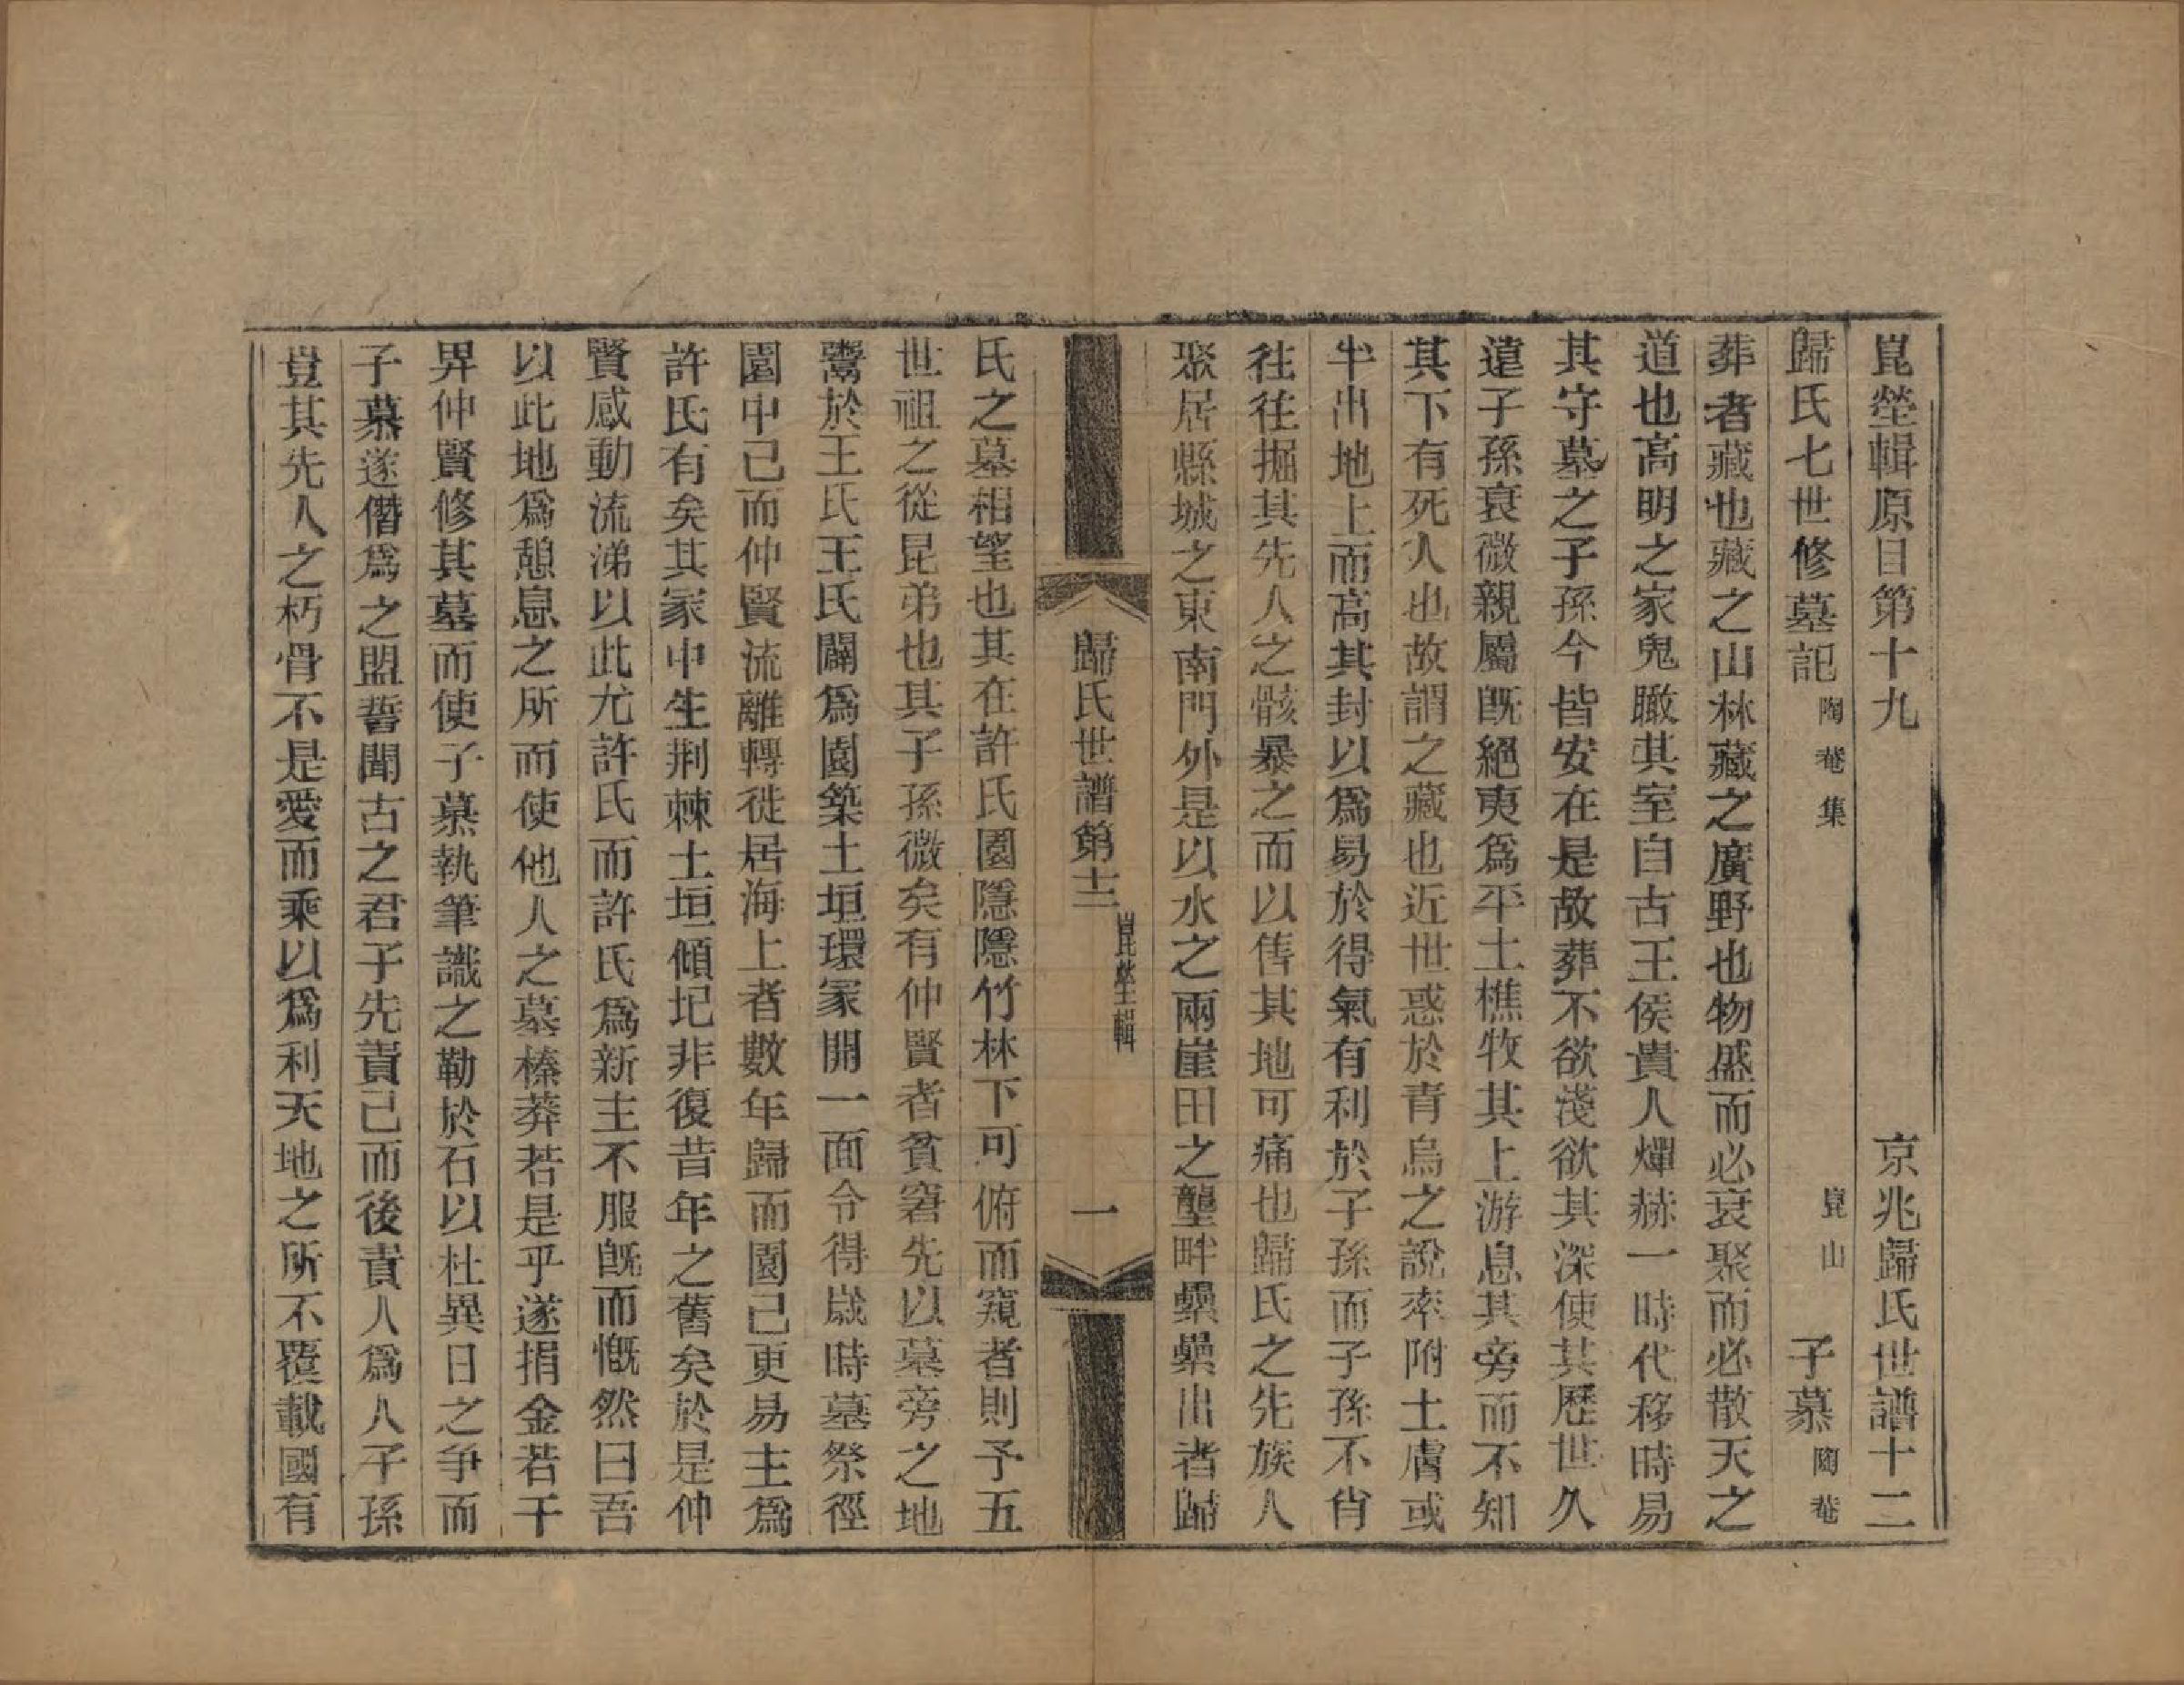 崑塋輯原目第十九　京兆歸氏世譜十二
歸氏七世修墓記 陶菴集　崑山　子慕 陶菴
葬者藏也藏之山林藏之廣野也物盛而必衰聚而必散天之
道也高明之家鬼瞰其室自古王侯貴人燀赫一時代移時易
其守墓之子孫今皆安在是故葬不欲淺欲其深使其歷世久
遠子孫衰微親屬既絕夷爲平土樵牧其上游息其旁而不知
其下有死人也故謂之藏也近世惑於青烏之說率附土膚或
半出地上而高其封以爲易於得氣有利於子孫而子孫不肖
往往掘其先人之骸暴之而以售其地可痛也歸氏之先族人
聚居縣城之東南門外是以水之兩崖田之壟畔纍纍出者歸
歸氏世譜第十二 崑塋輯　一
氏之墓相望也其在許氏園隱隱竹林下可俯而窺者則予五
世祖之從昆弟也其子孫微矣有仲賢者貧窘先以墓旁之地
鬻於王氏王氏闢爲園築土垣環冢開一面令得歲時墓祭徑
園中已而仲賢流離轉徙居海上者數年歸而園已更易主爲
許氏有矣其冢中生荆棘土垣傾圮非復昔年之舊矣於是仲
賢感動流涕以此尤許氏而許氏爲新主不服既而慨然曰吾
以此地爲憩息之所而使他人之墓榛莽若是乎遂捐金若干
畀仲賢修其墓而使子慕執筆識之勒於石以杜異日之爭而
子慕遂僭爲之盟誓聞古之君子先責己而後責人爲人子孫
豈其先人之朽骨不是愛而乘以爲利天地之所不覆載國有